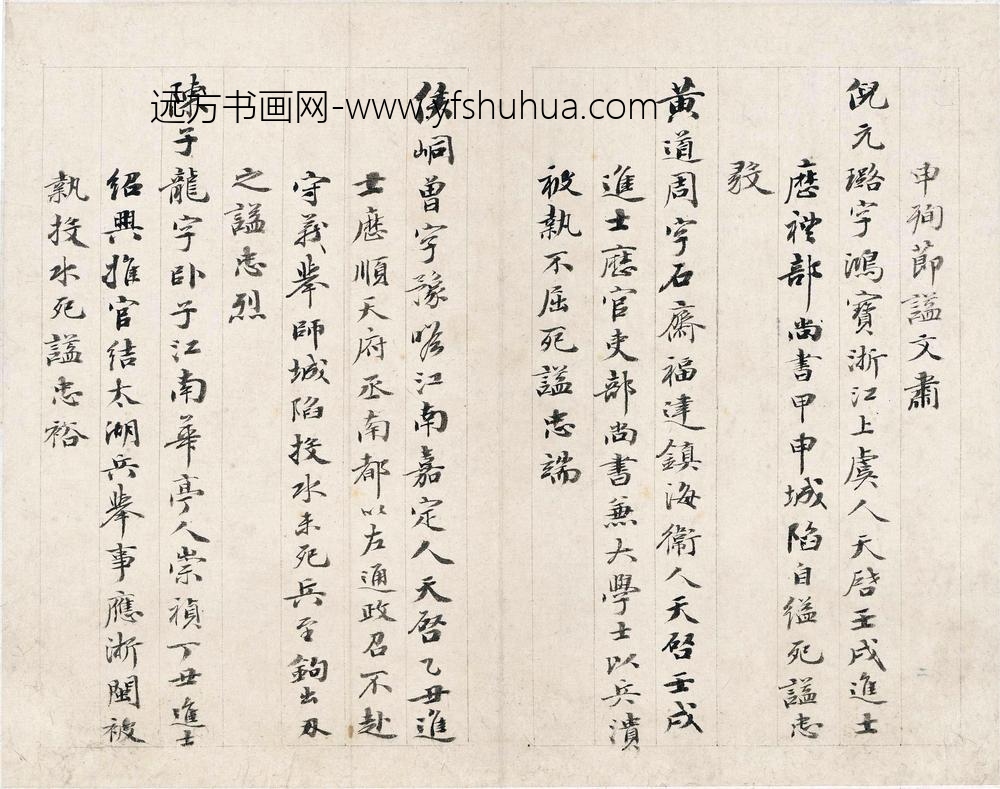 申殉節謚文肅
倪元璐字鴻寶浙江上虞人天啓壬戌進士
歷禮部尚書甲申城陷自縊死謚忠
毅
黃道周字石齋福建鎮海衞人天啓壬戌
進士歷官吏部尚書兼大學士以兵潰
被執不屈死謚忠端
侯峒曾字豫瞻江南嘉定人天啓乙丑進
士歷順天府丞南都以左通政召不赴
守義舉師城陷投水未死兵至鉤出刃
之謚忠烈
陳子龍字臥子江南華亭人崇禎丁丑進士
紹興推官結太湖兵舉事應浙閩被
執投水死謚忠裕
远方书画网-www.yfshuhua.com